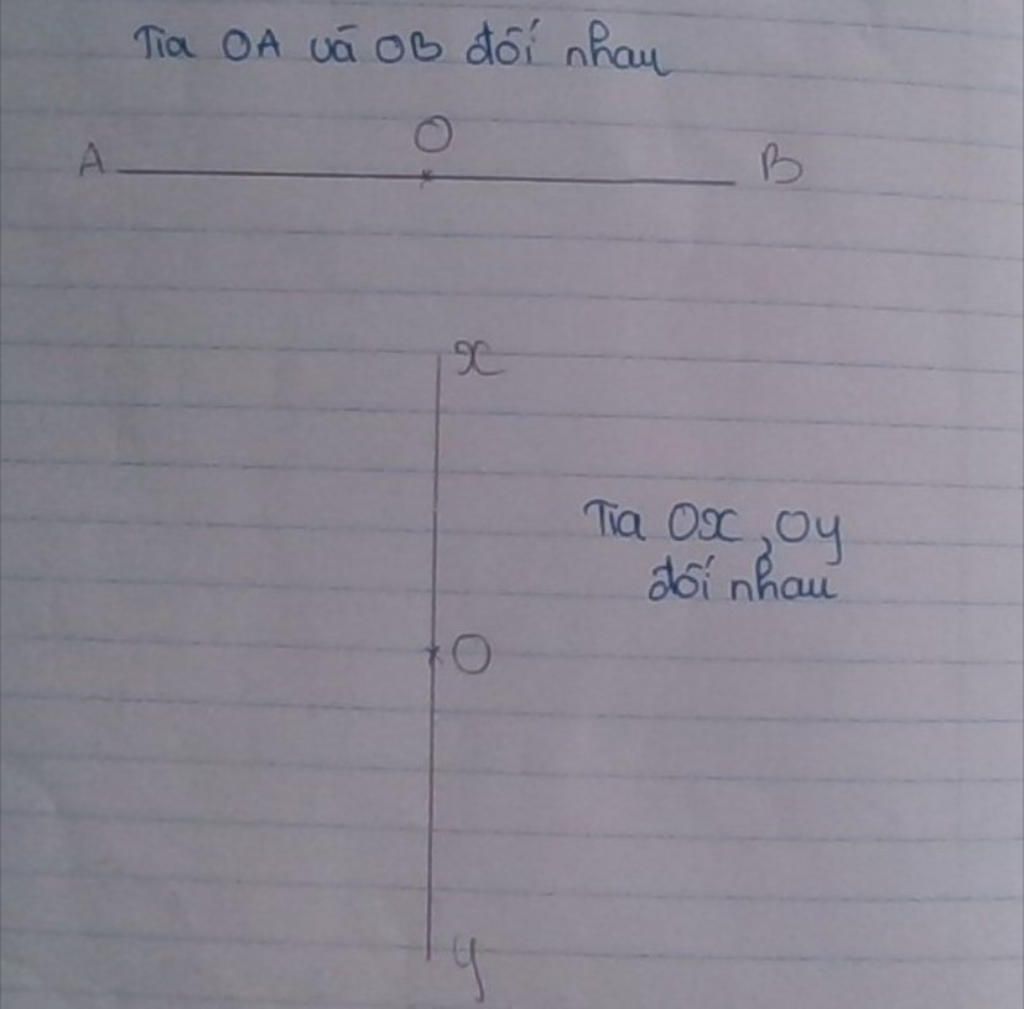 Tia OA và OB đối nhau
O
A B
x
Tia Ox, Oy
đối nhau
O
y